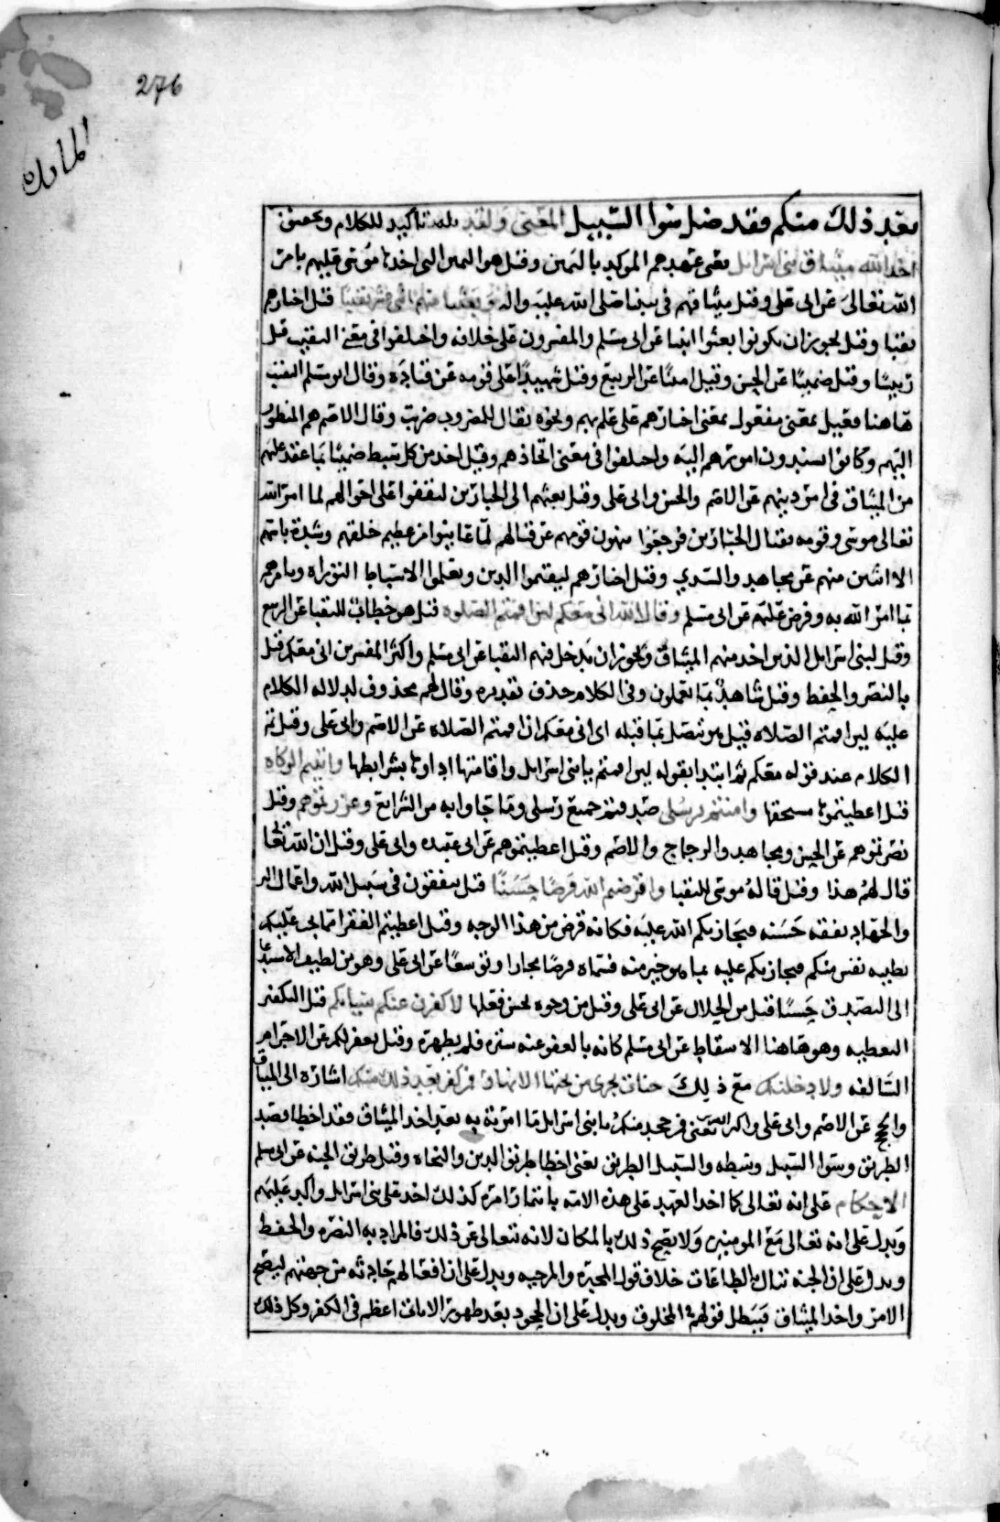 276
المائده
بعد ذلك منكم فقد ضل سوا السبيل المعنى ولقد تاكيد للكلام وتحقيق
اخذ الله ميثاق بني اسرايل يعني عهدهم الموكد باليمين وقيل هو اليمين التي اخذها موسى عليهم بامر
الله تعالى عن ابي علي وقيل ميثاقهم في نبينا صلى الله عليه واله وبعثنا منهم اثني عشر نقيبا قيل اخبارهم
نقبا وقيل يجوز ان يكونوا بعثوا انبيا عن ابي مسلم والمفسرون على خلافه واختلفوا في معنى النقيب قيل
رييسا وقيل ضمينا عن الحسن وقيل امينا عن الربيع وقيل شهيدا على قومه عن قتادة وقال ابو مسلم النقيب
هاهنا فعيل بمعنى مفعول بمعنى اختارهم على علم بهم ونحوه يقال للمضروب ضريب وقال الاصم هم المنظور
اليهم وكانوا يسندون امورهم اليه واختلفوا في معنى اتخاذهم وقيل اخذ من كل سبط ضمينا بما عقد عليهم
من الميثاق في امر دينهم عن الاصم والحسن وابي علي وقيل بعثهم الى الجبارين ليقفوا على احوالهم لما امر الله
تعالى موسى وقومه بقتال الجبارين فرجعوا ينهون قومهم عن قتالهم لما عاينوا من عظيم خلقهم وشدة باسهم
الا اثنين منهم عن مجاهد والسدي وقيل اختارهم ليقيموا الدين ويعلموا الاسباط التوراه ويامرهم
بما امر الله به وفرض عليهم عن ابي مسلم وقال الله اني معكم لين اقمتم الصلوه قيل هو خطاب للنقبا عن الربيع
وقيل لبني اسرايل الذين اخذ منهم الميثاق ويجوز ان يدخل فيهم النقبا عن ابي مسلم واكثر المفسرين اني معكم قيل
بالنصر والحفظ وقيل شاهد بما تعملون وفي الكلام حذف تقديره وقال لهم محذوف لدلاله الكلام
عليه لين اقمتم الصلاه قيل هو متصل بما قبله اي اني معكم اذا اقمتم الصلاه عن الاصم وابي علي وقيل تم
الكلام عند قوله معكم ثم ابتدا بقوله لين اقمتم يا بني اسرايل واقامتها اداوها بشرايطها واتيتم الزكاه
قيل اعطيتموها مستحقها وامنتم برسلي صدقتم جميع رسلي وما جاوا به من الشرايع وعزرتموهم وقيل
نصرتموهم عن الحسن ومجاهد والزجاج والاصم وقيل اعطيتموهم عن ابي عبيده وابي علي وقيل ان الله تعالى
قال لهم هذا وقيل قاله موسى للنقبا واقرضتم الله قرضا حسنا قيل ينفقون في سبيل الله واعمال البر
والجهاد نفقه حسنه فيجازيكم الله عليه فكانه قرض من هذا الوجه وقيل اعطيتم الفقرا ما يجب عليكم
بطيبه نفس منكم فيجازيكم عليه بما هو خير منه فسماه قرضا مجازا وتوسعا عن ابي علي وهو من لطيف الاستدعا
الى التصدق حسنا قيل من الحلال عن ابي علي وقيل من وجوه يحسن فعلها لاكفرن عنكم سياتكم قيل التكفير
التغطيه وهو هاهنا الاسقاط عن ابي مسلم كانه بالعفو عنه ستره فلم يظهره وقيل يغفر لكم عن الاجرام
السالفه ولادخلنكم مع ذلك جنات تجري من تحتها الانهار فمن كفر بعد ذلك منكم اشاره الى الميثاق
عن الاصم وابي علي يعني فمن جحد منكم يا بني اسرايل ما امرته به بعد اخذ الميثاق فقد اخطا قصد
الطريق وسوا السبيل وسطه والسبيل الطريق يعني اخطا طريق الدين والنجاه وقيل طريق الجنه عن ابي مسلم
الاحكام على انه تعالى كما اخذ العهد على هذه الامه باتباع امره كذلك اخذ على بني اسرايل واكد عليهم
ويدل على انه تعالى مع المومنين ولا يصح ذلك بالمكان لانه تتعالى عن ذلك فالمراد به النصره والحفظ
ويدل على ان الجنه تنال بالطاعات خلاف قول المجبره والمرجيه ويدل على ان افعالهم حادثه من جهتهم ليصح
الامر واخذ الميثاق فيبطل قولهم في المخلوق ويدل على ان الجحود بعد ظهور الايات اعظم في الكفر وكل ذلك